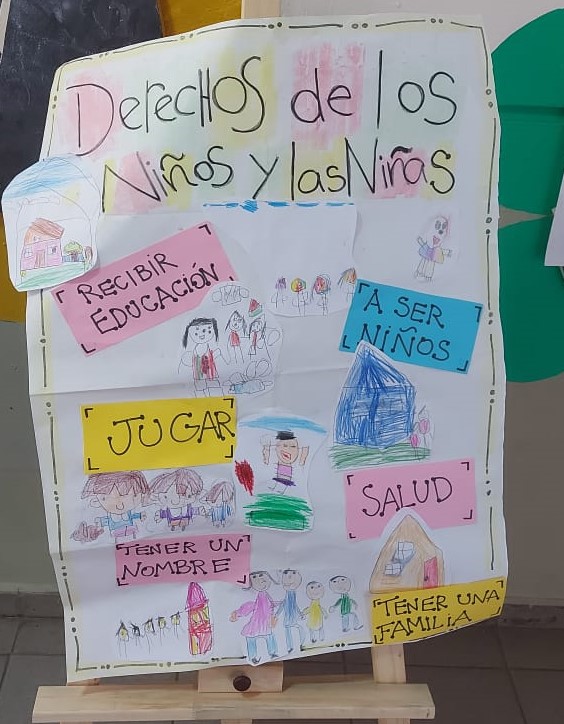 DerecHOS de los
Niños y las Niñas
RECIBIR
EDUCACIÓN.
A SER
NIÑOS
JUGAR
SALUD
TENER UN
NOMBRE
TENER UNA
FAMILIA